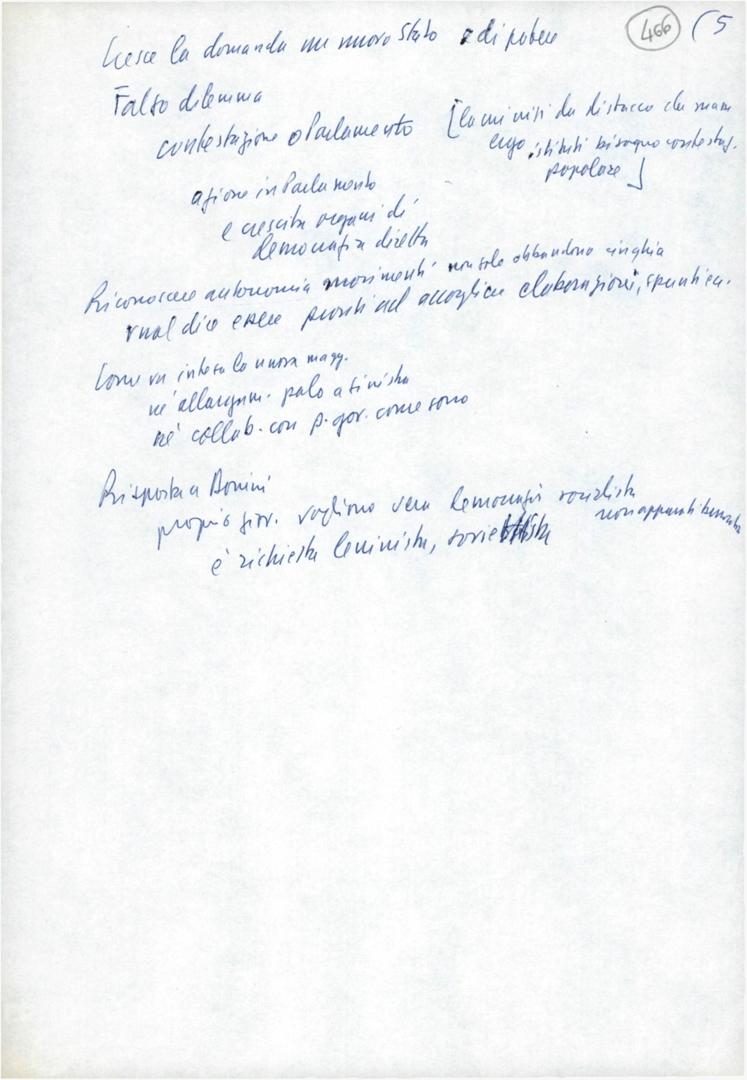 466 (5
Cresce la domanda un nuovo Stato e di potere
Falso dilemma
contestazione o Parlamento
[la crisi da distacco da masse
ergo istituti bisogno contestaz.
popolare]
azione in Parlamento
e crescita organi di
democrazia diretta
Riconoscere autonomia movimenti non solo abbandono cinghia
vuol dire essere pronti ad accogliere elaborazioni, spunti
Come va intesa la nuova magg.
né allargam. palo a sinistra
né collab. con p. gov. come sono
Risposta a Bonini
proprio giov. vogliono vera democrazia socialista
non apparati
è richiesta leninista, sovie